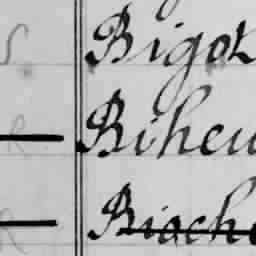 S Bigot
R Biheu
R Biache